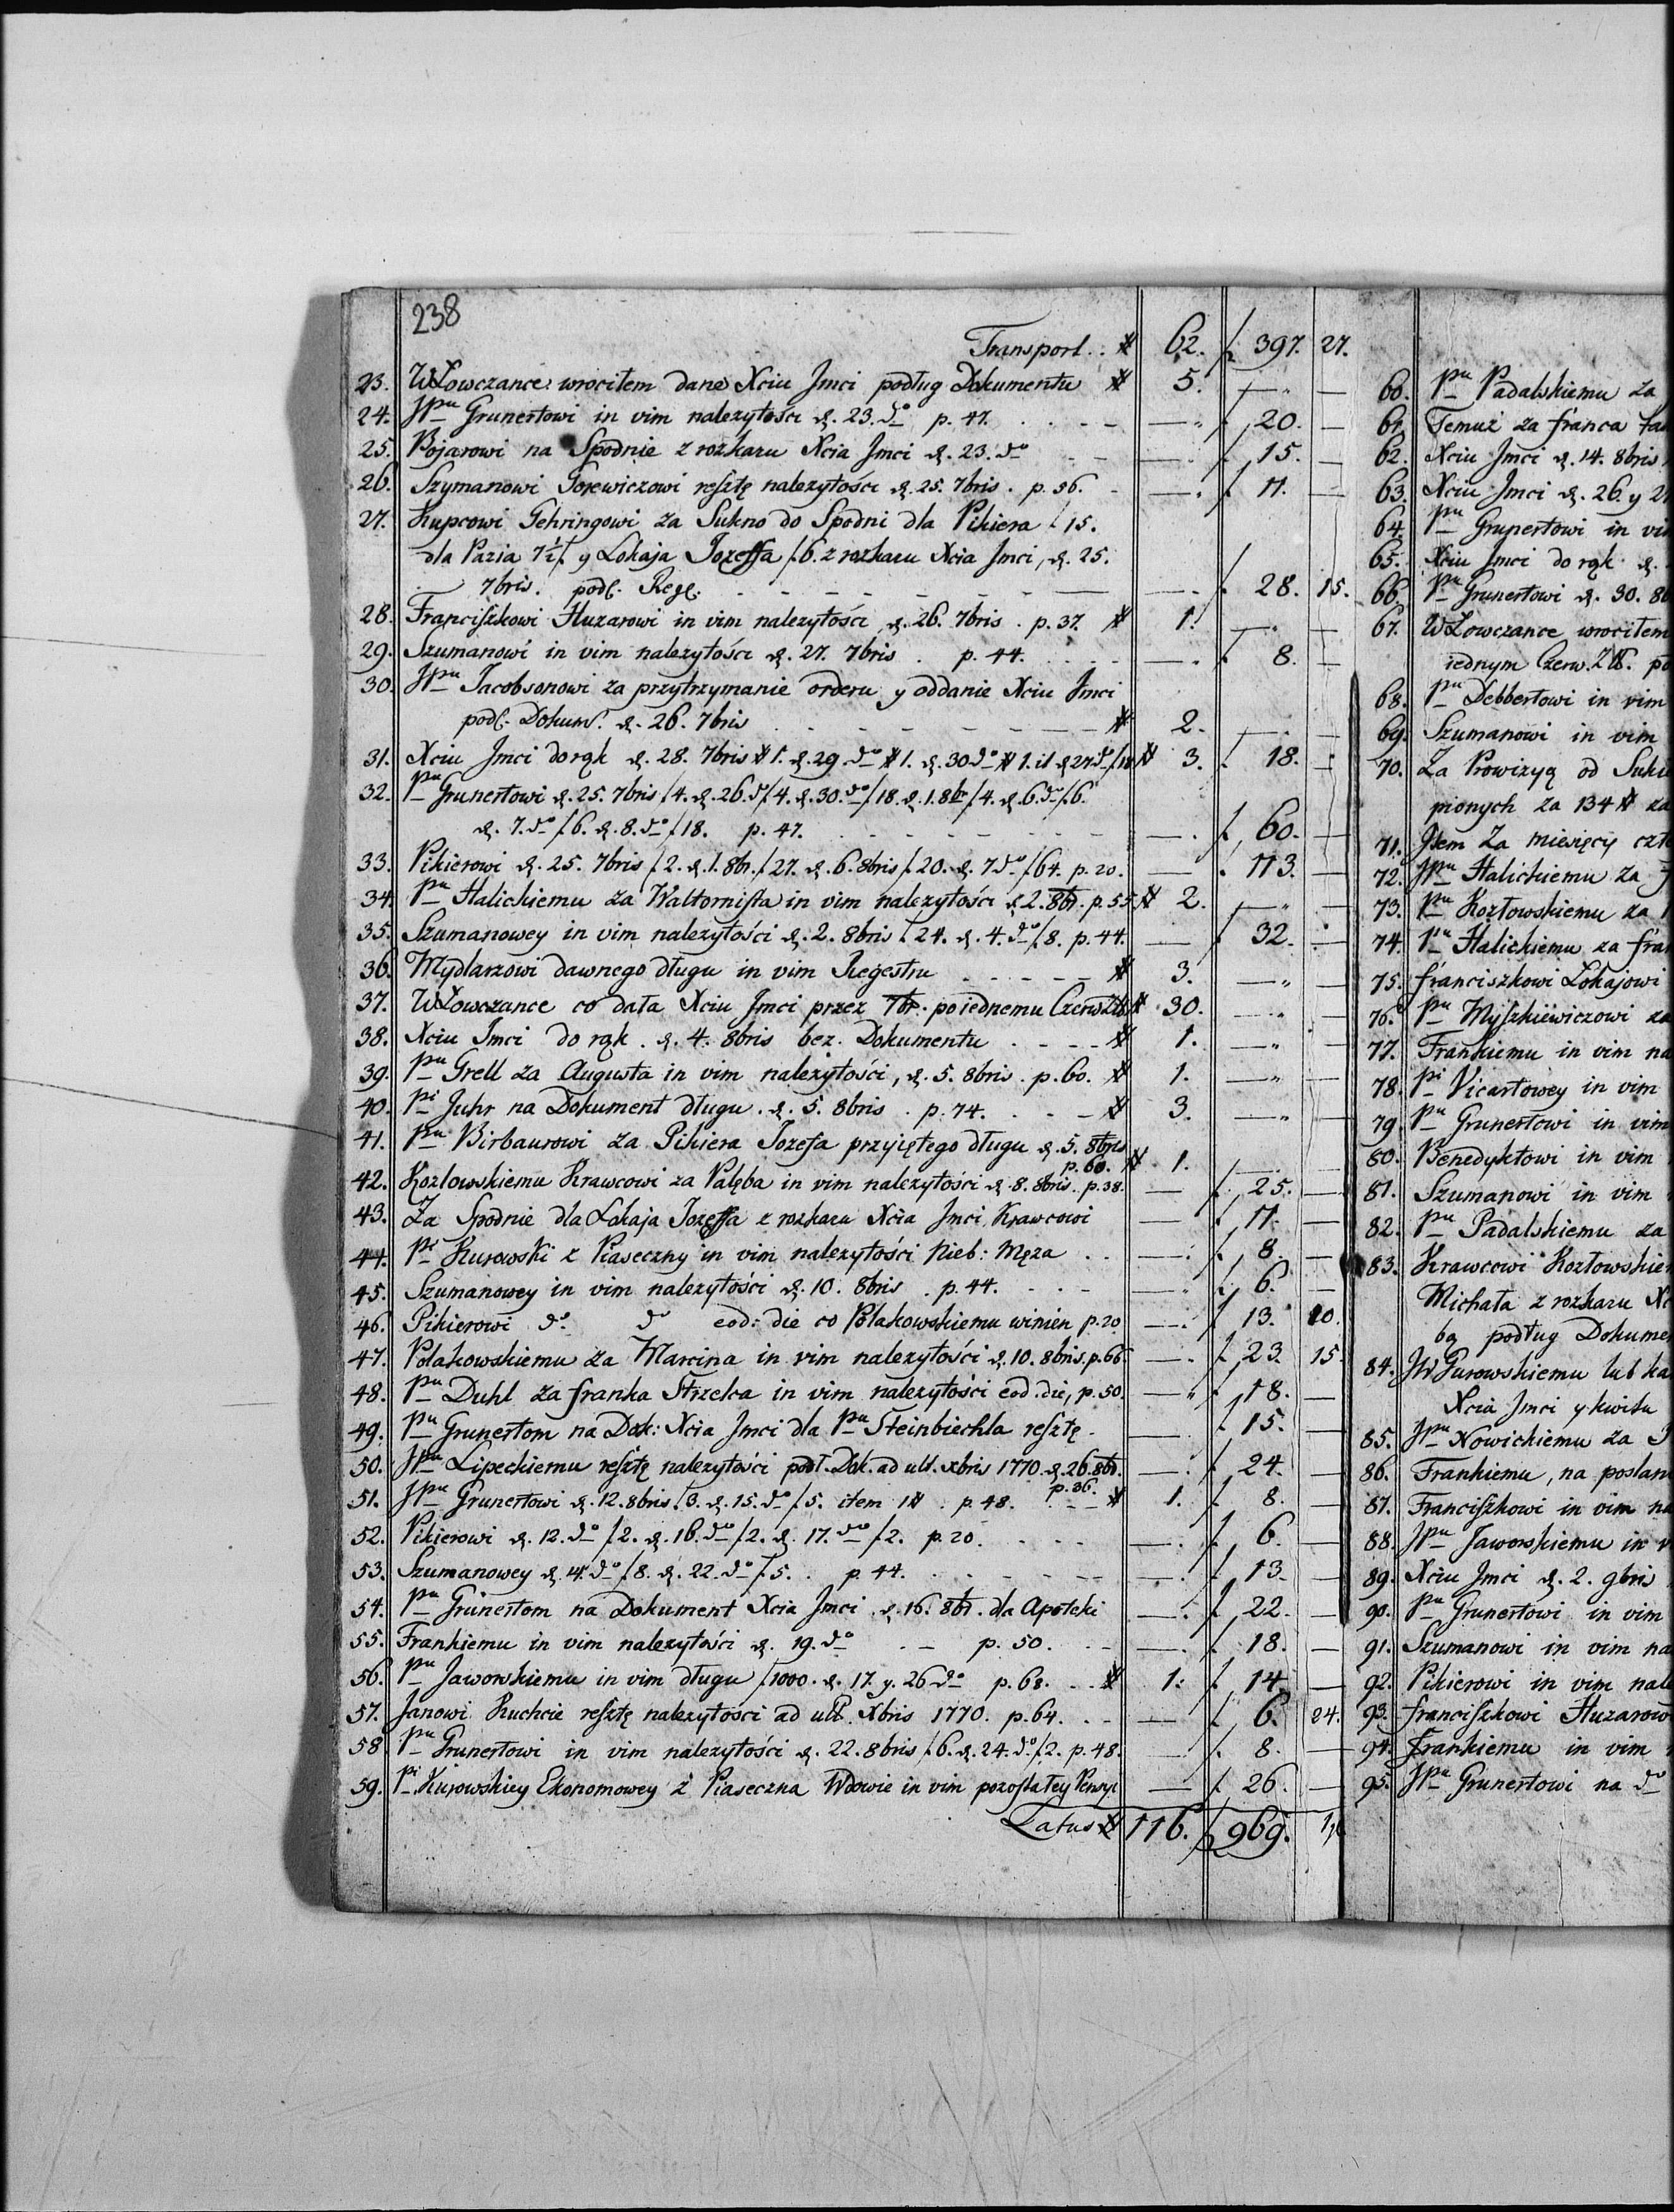 238
Transport . . # 62. f. 397. 27.
23. WŁowczance wrociłem dane Xciu Jmci podług Dokumentu # 5. — —
24. JPu Grunertowi in vim nalezytosci d. 23. do p. 47. — f. 20. —
25. Bojarowi na Spodnie z rozkazu Xcia Jmci d. 23. do — f. 15. —
26. Szymanowi resztę nalezytości d. 25. 7bris. p. 56. — f. 11. —
27. Kupcowi Gehringowi za Sukno do Spodni dla Pikiera f. 15.
dla Pazia 7½ f. y Lokaja Jozeffa f. 6. z rozkazu Xcia Jmci, d. 25.
7bris. podł. Regl. — f. 28. 15.
28. Franciszkowi Huzarowi in vim nalezytości, d. 26. 7bris. p. 37. # 1. — —
29. Szumanowi in vim nalezytości d. 27. 7bris. p. 44. — f. 8. —
30. JPu Jacobsonowi za przytrzymanie orderu y oddanie Xciu Jmci
podł. Dokum. d. 26. 7bris # 2. — —
31. Xciu Jmci do rąk d. 28. 7bris # 1. d. 29. do # 1. d. 30 do # 1. it d 27 do f. 18 # 3. f. 18. —
32. Pu Grunertowi d. 25. 7bris f. 4. d. 26. do f. 4. d. 30. do f. 18. d. 1. 8br f. 4. d. 6. do f. 6.
d. 7. do f. 6. d. 8. do f. 18. p. 47. — f. 60. —
33. Pikierowi d. 25. 7bris f. 2. d. 1. 8br. f. 27. d. 6. 8bris f. 20. d. 7 do f. 64. p. 20. — f. 113. —
34. Pu Halickiemu za Waltornista in vim nalezytości d 2. 8br. p. 55 # 2. — —
35. Szumanowey in vim nalezytości d. 2. 8bris f. 24. d. 4. do f. 8. p. 44. — f. 32. —
36. Mydlarzowi dawnego długu in vim Regestru # 3. — —
37. WŁowczance co dała Xciu Jmci przez 7br. po iednemu Czerw. Zł. # 30. — —
38. Xciu Jmci do rąk d. 4. 8bris bez Dokumentu # 1. — —
39. Pu Grell za Augusta in vim nalezytości, d. 5. 8bris. p. 60. # 1. — —
40. Pi Juhr na Dokument długu. d. 5. 8bris. p. 74. # 3. — —
41. Pu Birbaurowi za Pikiera Jozefa przyiętego długu d. 5. 8bris
p. 60. # 1. — —
42. Kozlowskiemu Krawcowi za Palęba in vim nalezytości d. 8. 8bris. p. 38. — f. 25. —
43. Za Spodnie dla Lokaja Jozeffa z rozkazu Xcia Jmci Krawcowi — f. 11. —
44. Pi Kurowski z Piaseczny in vim nalezytości Nieb: Męża — f. 8. —
45. Szumanowey in vim nalezytości d. 10. 8bris. p. 44. — f. 6. —
46. Pikierowi do do eod: die co Polakowskiemu winien p. 20 — f. 13. 20.
47. Polakowskiemu za Marcina in vim nalezytości d. 10. 8bris. p. 66. — f. 23. 15.
48. Pu Duhl za franka Strzelca in vim nalezytości eod. die, p. 50. — f. 18. —
49. Pu Grunertom na Dok: Xcia Jmci dla Pu Steinbiechla resztę — f. 15. —
50. JPu Lipeckiemu resztę nalezytości podł. Dok. ad ult. xbris 1770. d. 26. 8br. — f. 24. —
p. 36.
51. JPu Grunertowi d. 12. 8bris. f. 3. d. 15. do f. 5. item 1# p. 48. # 1. f. 8. —
52. Pikierowi d. 12. do f. 2. d. 16. do f. 2. d. 17. do f. 2. p. 20. — f. 6. —
53. Szumanowey d. 14. do f. 8. d. 22. do f. 5. p. 44. — f. 13. —
54. Pu Grunertom na Dokument Xcia Jmci d. 16. 8br. dla Apoteki — f. 22. —
55. Frankiemu in vim nalezytości d. 19. do p. 50. — f. 18. —
56. Pu Jaworskiemu in vim długu f. 1000. d. 17. y. 26 do p. 68. # 1. f. 14. —
57. Janowi Kuchcie resztę nalezytości ad ult. Xbris 1770. p. 64. — f. 6. 24.
58 Pu Grunertowi in vim nalezytości d. 22. 8bris f. 6. d. 24. do f. 2. p. 48. — f. 8. —
59. Pi Kurowskiey Ekonomowey z Piaseczna Wdowie in vim pozostałey Pensyi — f. 26. —
Latus # 116. f. 969.
60. Pu Padalskiemu za
61. Temuż za franca
62. Xciu Jmci d. 14. 8bris
63. Xciu Jmci d. 26. y
64. Pu Grunertowi in
65. Xciu Jmci do rąk d.
66. Pu Grunertowi d. 30.
67. WŁowczance wrociłem
iednym Czerw. Zł.
68. Pu Debbertowi in vim
69. Szumanowi in vim
70. Za Prowizyą od
pionych za 134 # za
71. Item Za miesięcy
72. JPu Halickiemu za
73. Pu Kozłowskiemu za
74. Pu Halickiemu za
75. franciszkowi Lokajowi
76. Pu Myszkiewiczowi
77. Frankiemu in vim
78. Pi Vicartowey in vim
79. Pu Grunertowi in vim
80. Benedyktowi in vim
81. Szumanowi in vim
82. Pu Padalskiemu za
83. Krawcowi
Michała z rozkazu
podług
84. JW Gurowskiemu lub
Xcia Jmci y kwitu
85. JPu Nowickiemu za
86. Frankiemu, na
87. Franciszkowi in vim
88. JPu Jaworskiemu in
89. Xciu Jmci d. 2. 9bris
90. Pu Grunertowi in vim
91. Szumanowi in vim
92. Pikierowi in vim
93. franciszkowi
94. frankiemu in vim
95. JPu Grunertowi na do